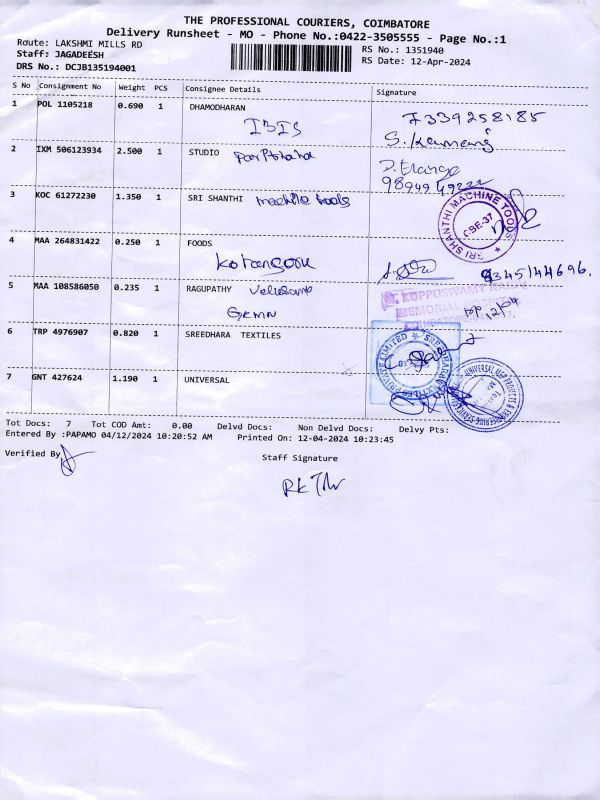 THE PROFESSIONAL COURIERS, COIMBATORE
Delivery Runsheet - MO - Phone No.:0422-3505555 - Page No.:1
Route: LAKSHMI MILLS RD
Staff: JAGADEESH
DRS No.: DCJB135194001
RS No.: 1351940
RS Date: 12-Apr-2024
S No Consignment No Weight PCS Consignee Details Signature
1 POL 1105218 0.690 1 DHAMODHARAN 7339258185
IBIS
2 IXM 506123934 2.500 1 STUDIO
3 KOC 61272230 1.350 1 SRI SHANTHI machine tools
SRI SHANTHI MACHINE TOOLS
CBE-37
4 MAA 264831422 0.250 1 FOODS
9345144696.
5 MAA 108586050 0.235 1 RAGUPATHY
KUPPUSWAMY NAIDU
MEMORIAL HOSPITAL
COIMBATORE
6 TRP 4976907 0.820 1 SREEDHARA TEXTILES
7 GNT 427624 1.190 1 UNIVERSAL
Tot Docs: 7 Tot COD Amt: 0.00 Delvd Docs: Non Delvd Docs: Delvy Pts:
Entered By :PAPAMO 04/12/2024 10:20:52 AM Printed On: 12-04-2024 10:23:45
Verified By
Staff Signature